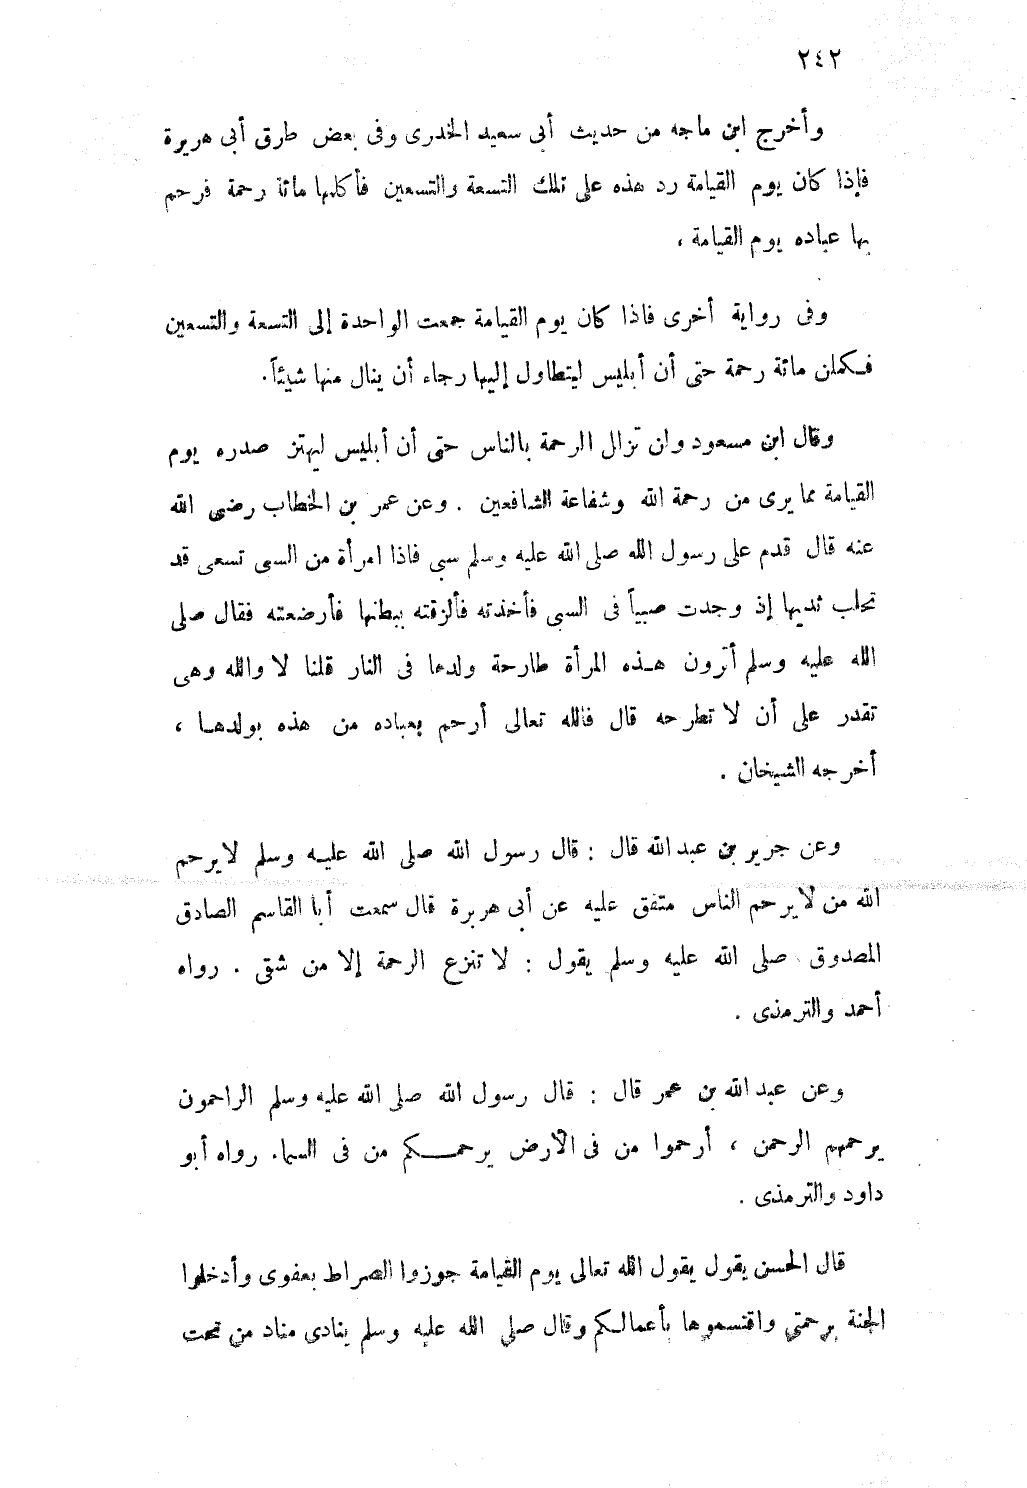 ٢٤٢
وأخرج ابن ماجه من حديث أبى سعيد الخدرى وفى بعض طرق أبى هريرة
فإذا كان يوم القيامة رد هذه على تلك التسعة والتسعين فأكملها مائة رحمة فرحم
بها عباده يوم القيامة ،
وفى رواية أخرى فاذا كان يوم القيامة جمعت الواحدة إلى التسعة والتسعين
فكملن مائة رحمة حتى أن أبليس ليتطاول إليها رجاء أن ينال منها شيئاً .
وقال ابن مسعود ولن تزال الرحمة بالناس حتى أن أبليس ليهتز صدره يوم
القيامة مما يرى من رحمة الله وشفاعة الشافعين . وعن عمر بن الخطاب رضى الله
عنه قال قدم على رسول الله صلى الله عليه وسلم سبى فاذا امرأة من السبى تسعى قد
تحلب ثديها إذ وجدت صبياً فى السبى فأخذته فألزقته ببطنها فأرضعته فقال صلى
الله عليه وسلم أترون هذه المرأة طارحة ولدها فى النار قلنا لا والله وهى
تقدر على أن لا تطرحه قال فالله تعالى أرحم بعباده من هذه بولدها ،
أخرجه الشيخان .
وعن جرير بن عبد الله قال : قال رسول الله صلى الله عليه وسلم لا يرحم
الله من لا يرحم الناس متفق عليه عن أبى هريرة قال سمعت أبا القاسم الصادق
المصدوق صلى الله عليه وسلم يقول : لا تنزع الرحمة إلا من شقى . رواه
أحمد والترمذى .
وعن عبد الله بن عمر قال : قال رسول الله صلى الله عليه وسلم الراحمون
يرحمهم الرحمن ، أرحموا من فى الأرض يرحمكم من فى السما. رواه أبو
داود والترمذى .
قال الحسن يقول يقول الله تعالى يوم القيامة جوزوا الصراط بعفوى وأدخلوا
الجنة برحمتي واقتسموها بأعمالكم وقال صلى الله عليه وسلم ينادى مناد من تحت